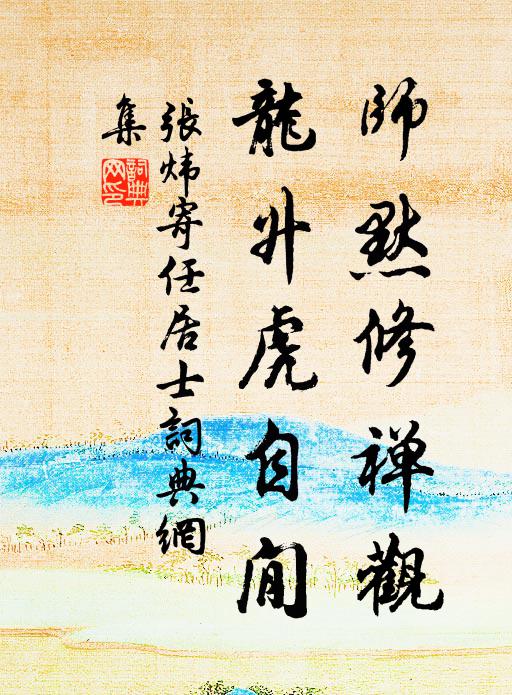 師默修禪觀
龍升虎自閒
張煒寄任居士詞典網
集
詞典网印